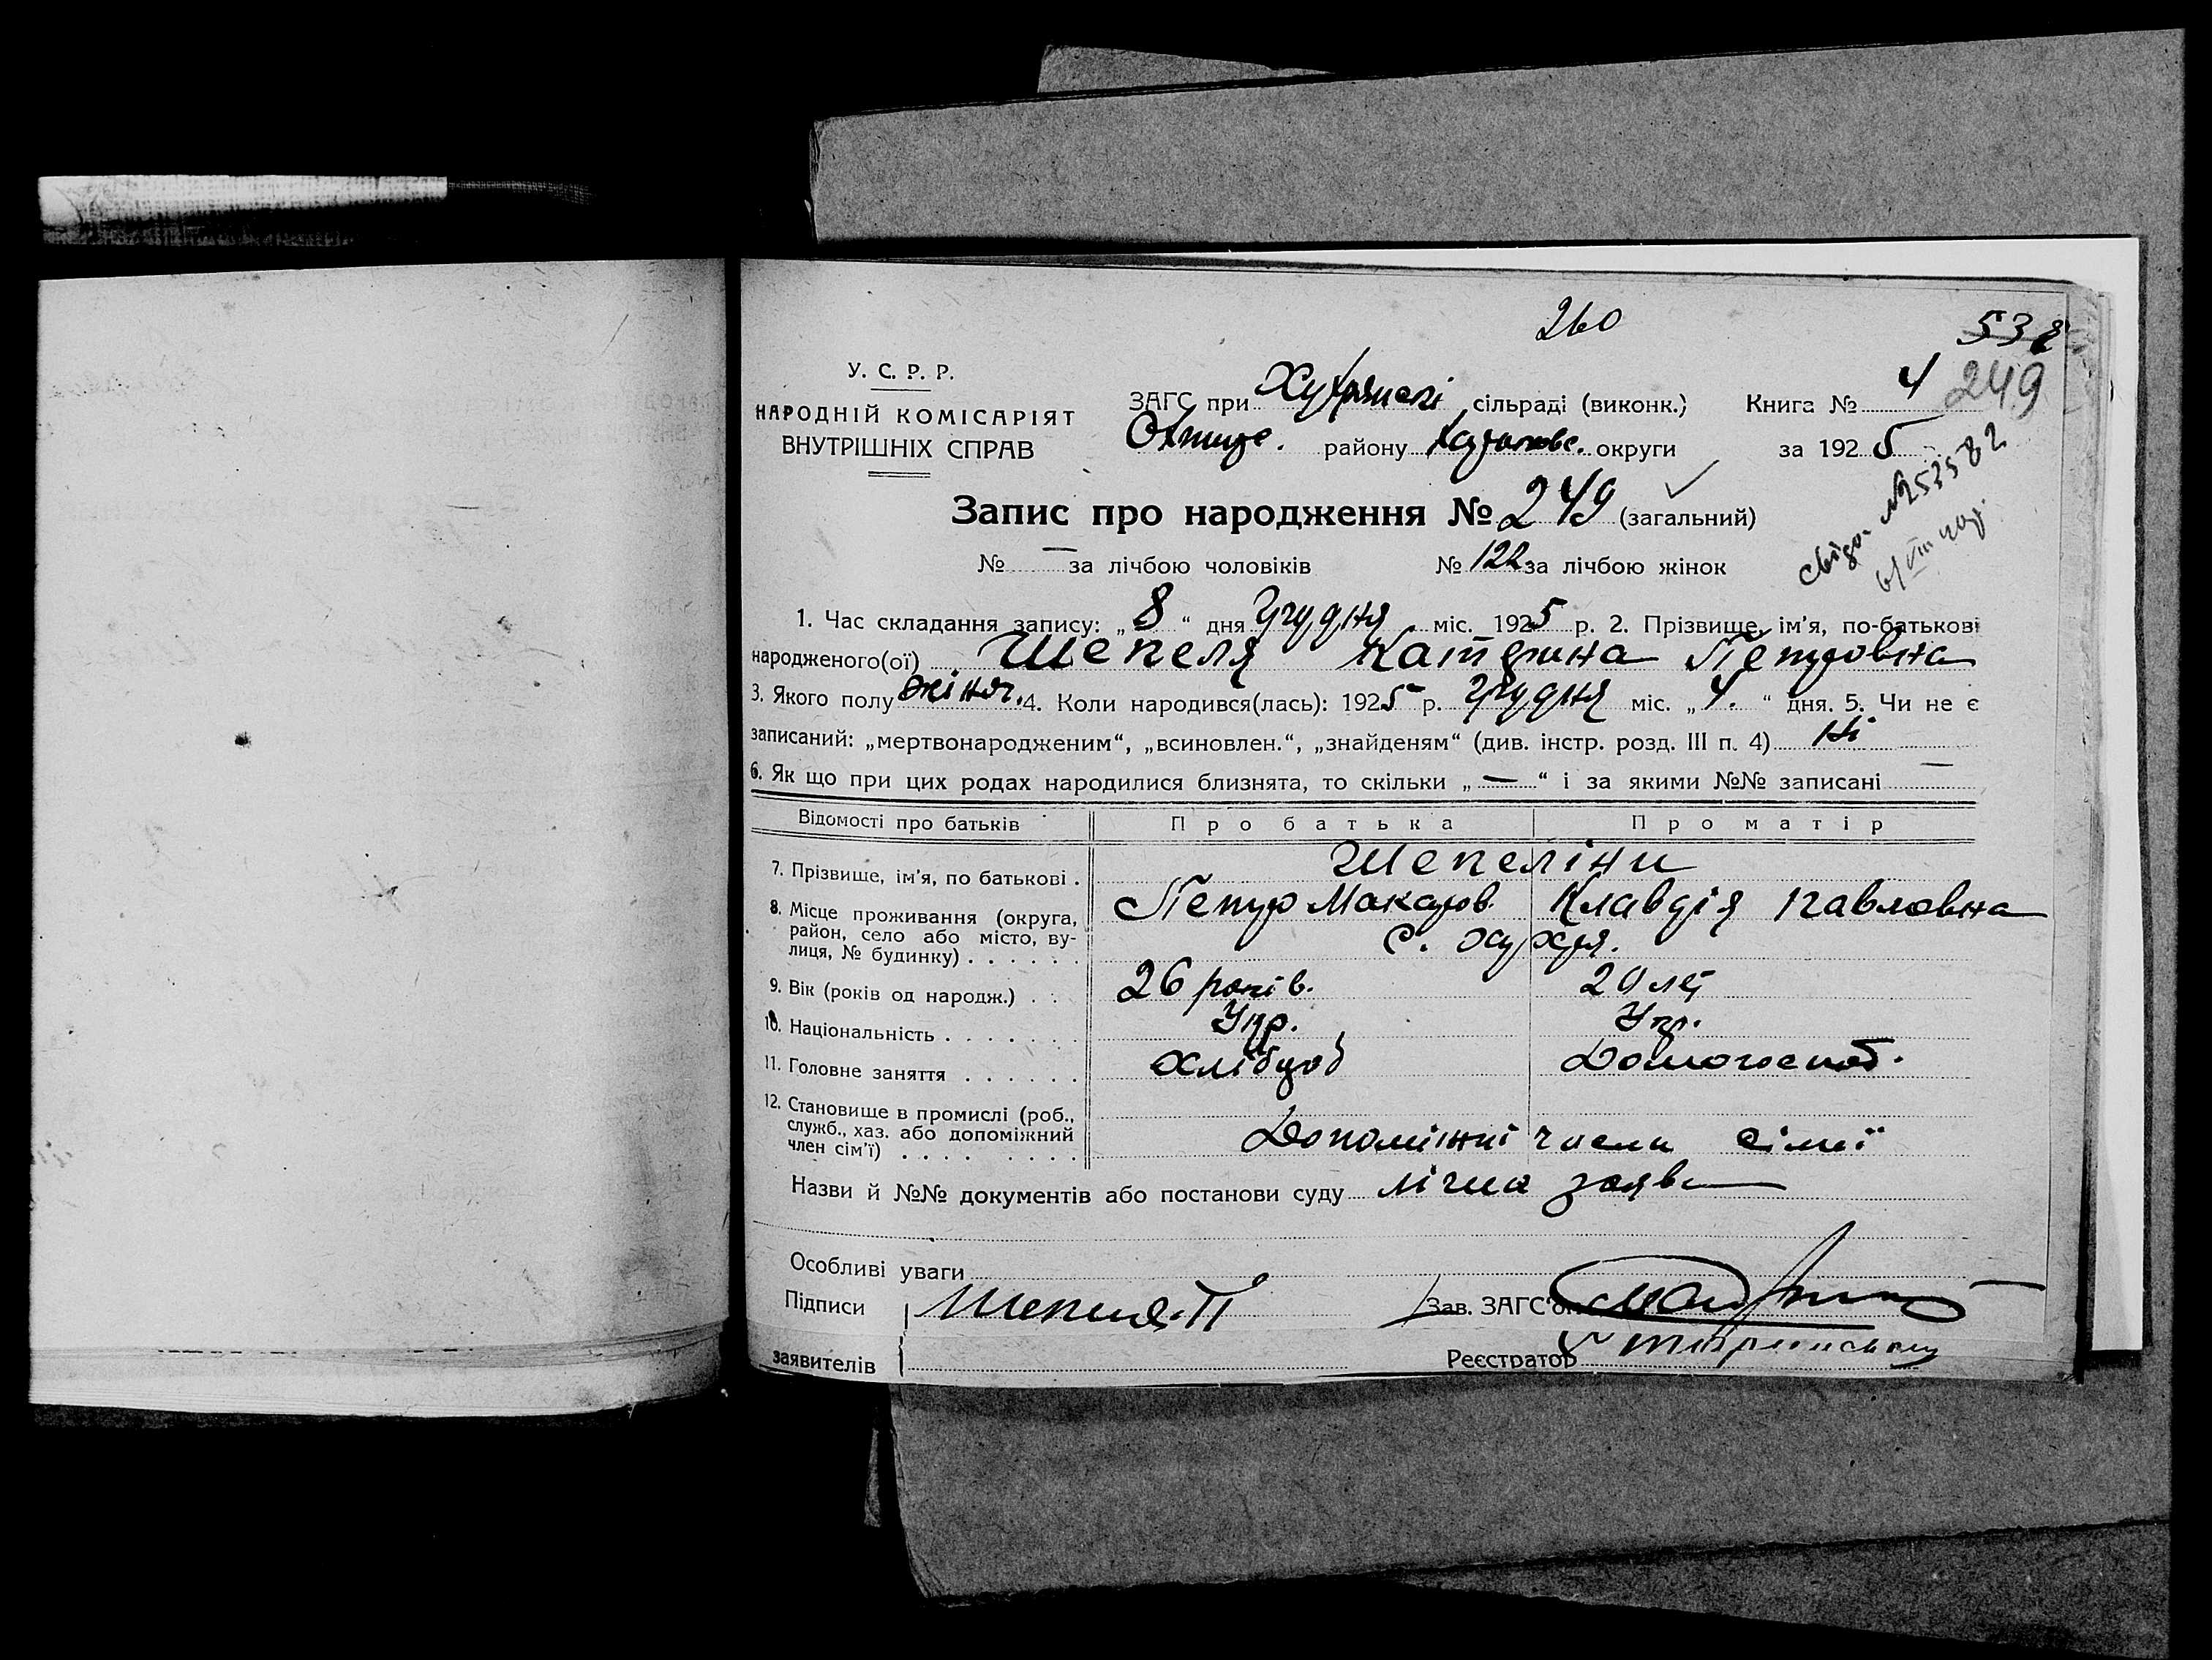 260
538
У. С. Р. Р.
НАРОДНІЙ КОМІСАРІЯТ
ВНУТРІШНІХ СПРАВ
ЗАГС при Хухрянскі сільраді (виконк.) Книга № 4 249
Охтирс. району округи за 1925
Запис про народження № 249 (загальний)
свідо №253582
№ — за лічбою чоловіків № 122 за лічбою жінок
1. Час складання запису: „8“ дня Грудня міс. 1925 р. 2. Прізвище, ім'я, по-батькові
народженого(ої) Шепеля Катерина Петровна
3. Якого полу жіноч. 4. Коли народився(лась): 1925 р. Грудня міс. „4.“ дня. 5. Чи не є
записаний: „мертвонародженим“, „всиновлен.“, „знайденям“ (див. інстр. розд. III п. 4) Ні
6. Як що при цих родах народилися близнята, то скільки „—“ і за якими №№ записані —
Відомості про батьків Про батька Про матір
Шепеліни
7. Прізвище, ім'я, по батькові . Петро Макаров Клавдія Павловна
8. Місце проживання (округа,
район, село або місто, ву-
лиця, № будинку) . . . . . . с. Хухря.
9. Вік (років од народж.) . . 26 років. 20 лет
10. Національність . . . . . . . Укр. Укр.
11. Головне заняття . . . . . . Хлібороб Домогоспод.
12. Становище в промислі (роб.,
служб., хаз. або допоміжний
член сім'ї) . . . . . . . . Допоміжні члени сімї
Назви й №№ документів або постанови суду лічна заява
Особливі уваги
Підписи Шепеля. П Зав. ЗАГС'ом
заявителів Реєстратор